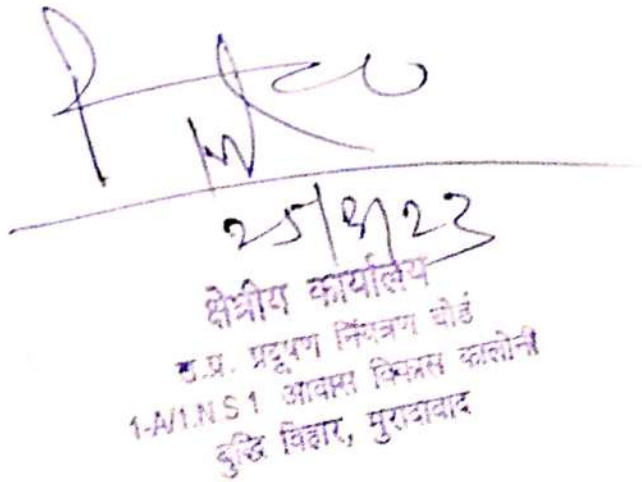 25/8/23
क्षेत्रीय कार्यालय
उ.प्र. प्रदूषण नियंत्रण बोर्ड
1-A/1.N S 1 आवास विकास कालोनी
बुद्धि विहार, मुरादाबाद